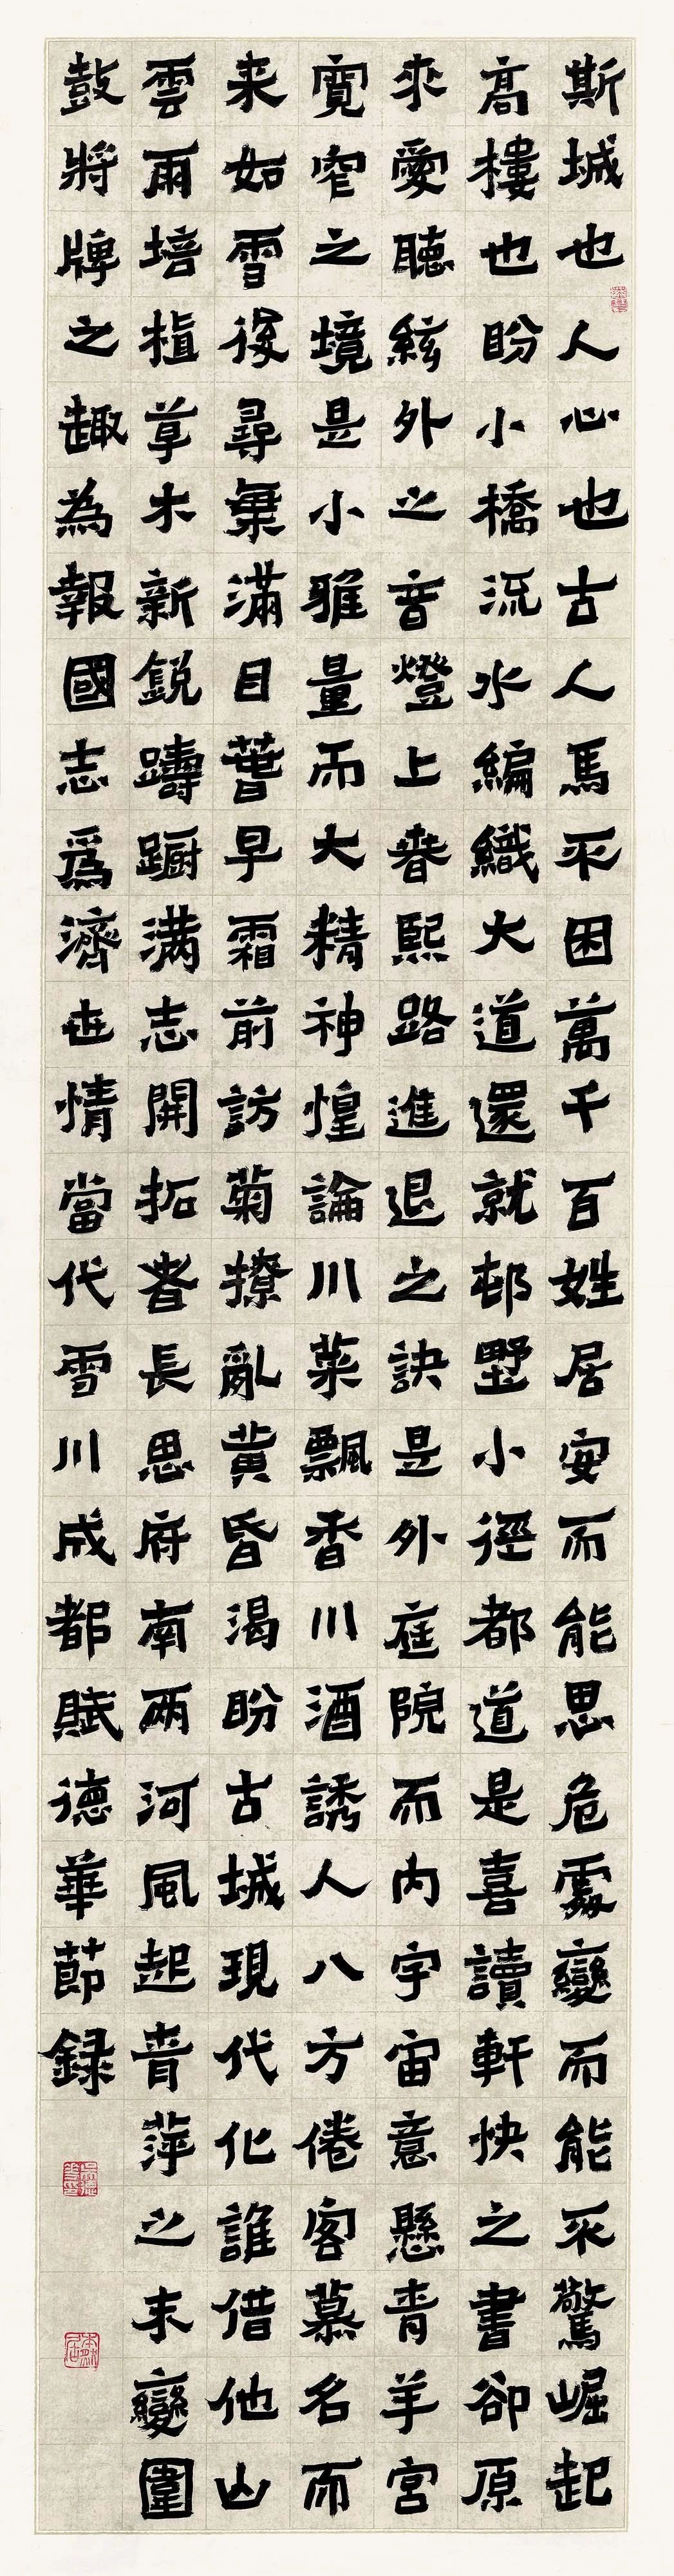 斯城也人心也古人馬不困萬千百姓居安而能思危處變而能不驚崛起
高樓也盼小橋流水編織大道還就邨墅小徑都道是喜讀軒快之書卻原
來愛聽絃外之音燈上春熙路進退之訣是外庭院而內宇宙意懸青羊宮
寬窄之境是小雅量而大精神惶論川菜飄香川酒誘人八方倦客慕名而
来如雪後尋菓滿目蕾早霜前訪菊撩亂黃昏渴盼古城現代化誰借他山
雲雨培植草木新銳躊躇滿志開拓者長思府南兩河風起青萍之末變圍
鼓將牌之趣為報國志爲濟世情當代雪川成都賦德華節録